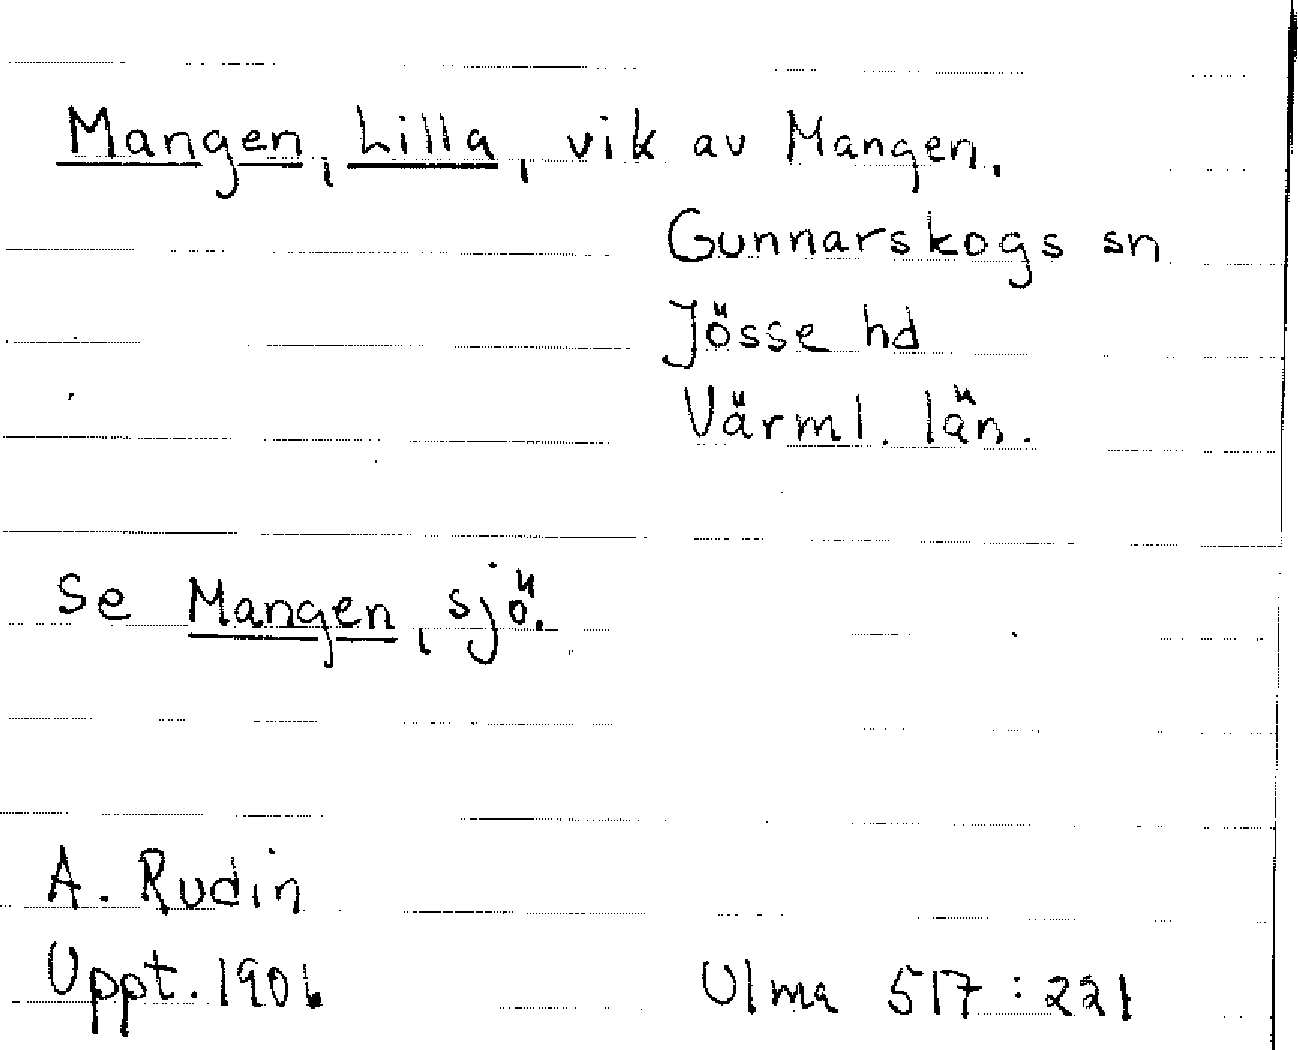 Mangen, Lilla, vik av Mangen.
Gunnarskogs sn
Jösse hd
Värml. län.
Se Mangen, sjö.
A. Rudin
Uppt. 1906
Ulma 517:221